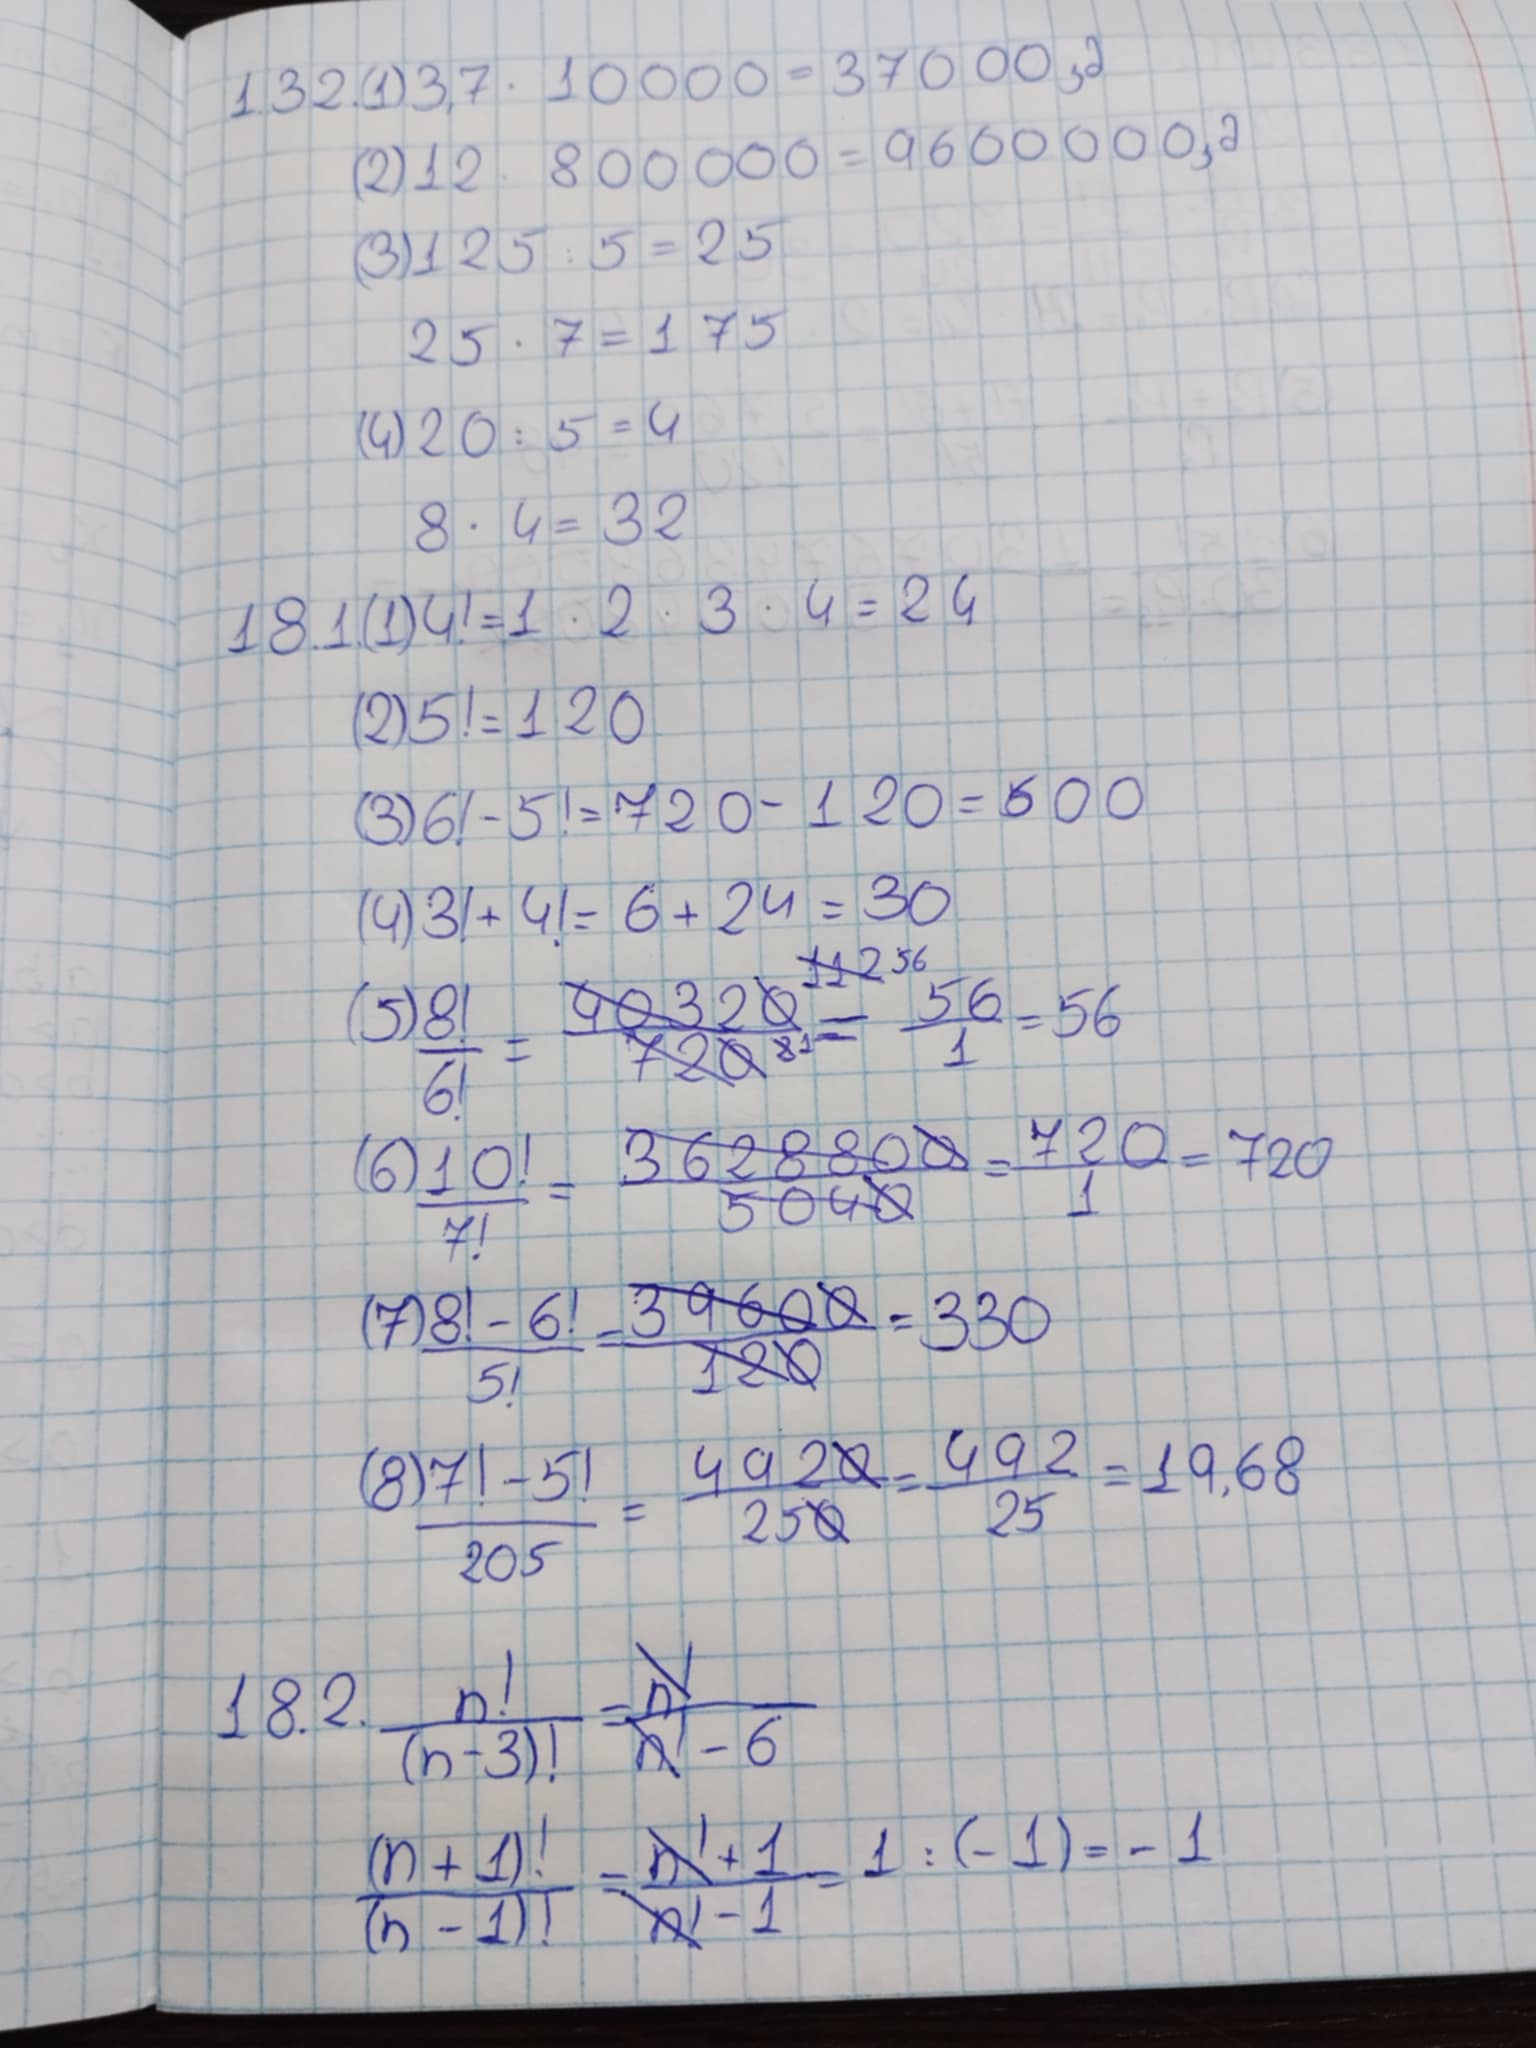 1.32.(1)3,7 · 10000 = 37000,д
(2)12 · 800000 = 9600000,д
(3)125 : 5 = 25
25 · 7 = 175
(4)20 : 5 = 4
8 · 4 = 32
18.1.(1)4! = 1 · 2 · 3 · 4 = 24
(2)5! = 120
(3)6! - 5! = 720 - 120 = 600
(4)3! + 4! = 6 + 24 = 30
(5) 8!/6! = 40320/720 112 56 / 2 1 = 56/1 = 56
(6) 10!/7! = 3628800/5040 = 720/1 = 720
(7) 8! - 6!/5! = 39600/120 = 330
(8) 7! - 5!/205 = 4920/250 = 492/25 = 19,68
18.2. n!/(n-3)! = n!/n! - 6
(n + 1)!/(n - 1)! = n! + 1/n! - 1 = 1 : (-1) = -1